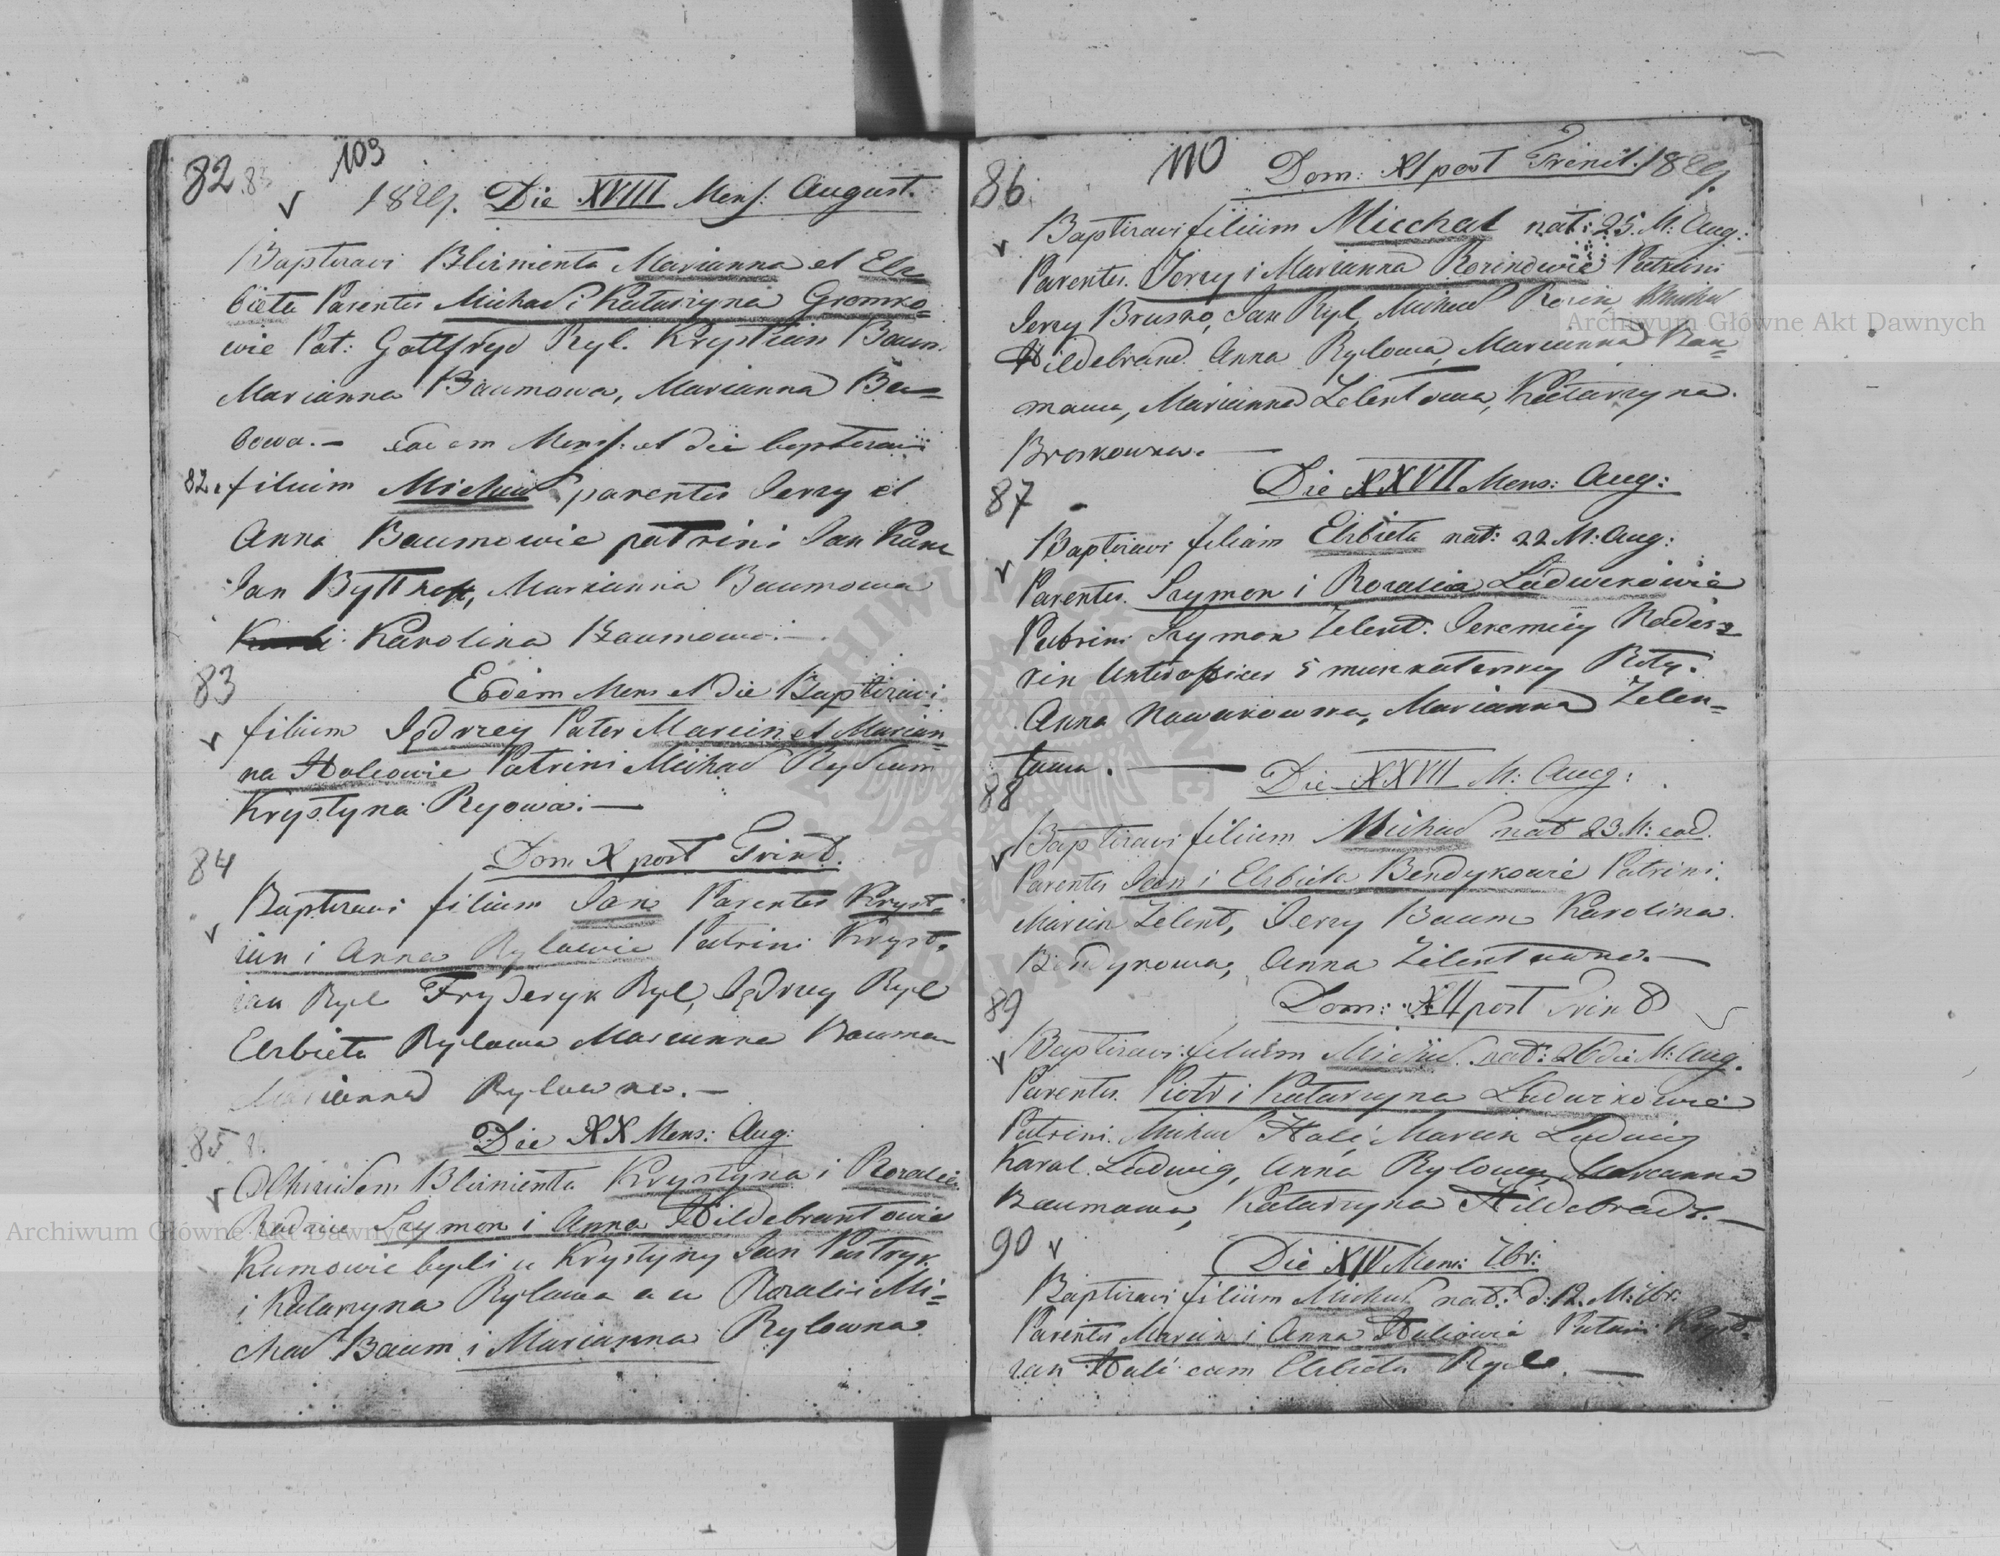 82 83 109
1829. Die XVIII Mens: August.
Baptisavi Bliznienta Marianna et Elz=
bieta Parentes Michał i Katarzyna Gromko=
wie Pat: Gottfryd Ryl. Krystian Baum.
Marianna Baumowa, Marianna Ba=
bowa. — eadem Mens: et die baptisavi
82. filium Michał parentes Jerzy et
Anna Baumowie patrini Jan
Jan Marianna Baumowa
Karolina Baumowa: —
83
Eodem Mens et die Baptisavi
filium Jędrzey Pater Marcin et Marian=
na Haliowie Patrini Michał
Krystyna Rylowa: —
84
Dom X post Trinit.
Baptisavi filium Jan Parentes Kryst=
ian i Anna Rylowie Patrini Kryst=
ian Ryl Fryderyk Ryl, Jędrzey Ryl
Elzbieta Rylowa Marianna Bauma
Marianna Rylowna. —
85
Die XX Mens: Aug:
Bliznienta Krystyna i Rozalia
Rodzice Szymon i Anna Hildebrantowie
Kumowie byli u Krystyny Jan
i Katarzyna Rylowa a u Rozalii Mi=
chał Baum i Marianna Rylowna.
86 110 Dom: XI post Trinit. 1829.
Baptisavi filium Miechał nat: 25. M: Aug:
Parentes. Jerzy i Marianna Rozinowie Patrini
Jerzy Brusko, Jan Ryl, Michał Rozin, Michał
Hildebrand. Anna Rylowa, Marianna
mawa, Marianna Zelentowa, Katarzyna.
—
87
Die XXVII Mens: Aug:
Baptisavi filiam Elzbieta nat: 22 M: Aug:
Parentes. Szymon i Rozalia Ludwikowie
Patrini Szymon Zelent. Jeremiey
Unteroficer 5
Anna Nowakowska, Marianna Zelen=
towa. —
88
Die XXVII M: Aug:
Baptisavi filium Michał nat 23 M: ead.
Parentes Jan i Elzbieta Bendykowie Patrini.
Marcin Zelent, Jerzy Baum Karolina.
Bendykowa, Anna Zelentowna. —
89
Dom: XII post Trinit
Baptisavi filium Michał. nat: 26 die M: Aug.
Parentes. Piotr i Katarzyna Ludwikowie
Patrini. Michał Hali, Marcin Ludwig
Karol. Ludwig, Anna Rylowa, Marianna
Baumowa, Katarzyna Hildebradt. —
90
Die XIV Mens: 7br:
Baptisavi filium Michał nat: d: 12. M: 7br.
Parentes Marcin i Anna Haliowie Patrini Kryst=
ian Hali cum Elzbieta Ryl. —
Archiwum Główne Akt Dawnych
Archiwum Główne Akt Dawnych